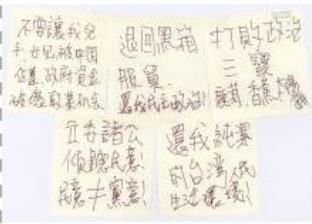 不要讓我兒
子、女兒被中国
企業、政府資金
破壞就業机会
退回黑箱
服貿
還我民主政治!
打敗政治
三寶
立委諸公
傾聽民意!
民意≠黨意!
還我純潔
的台湾人民
生活環境!